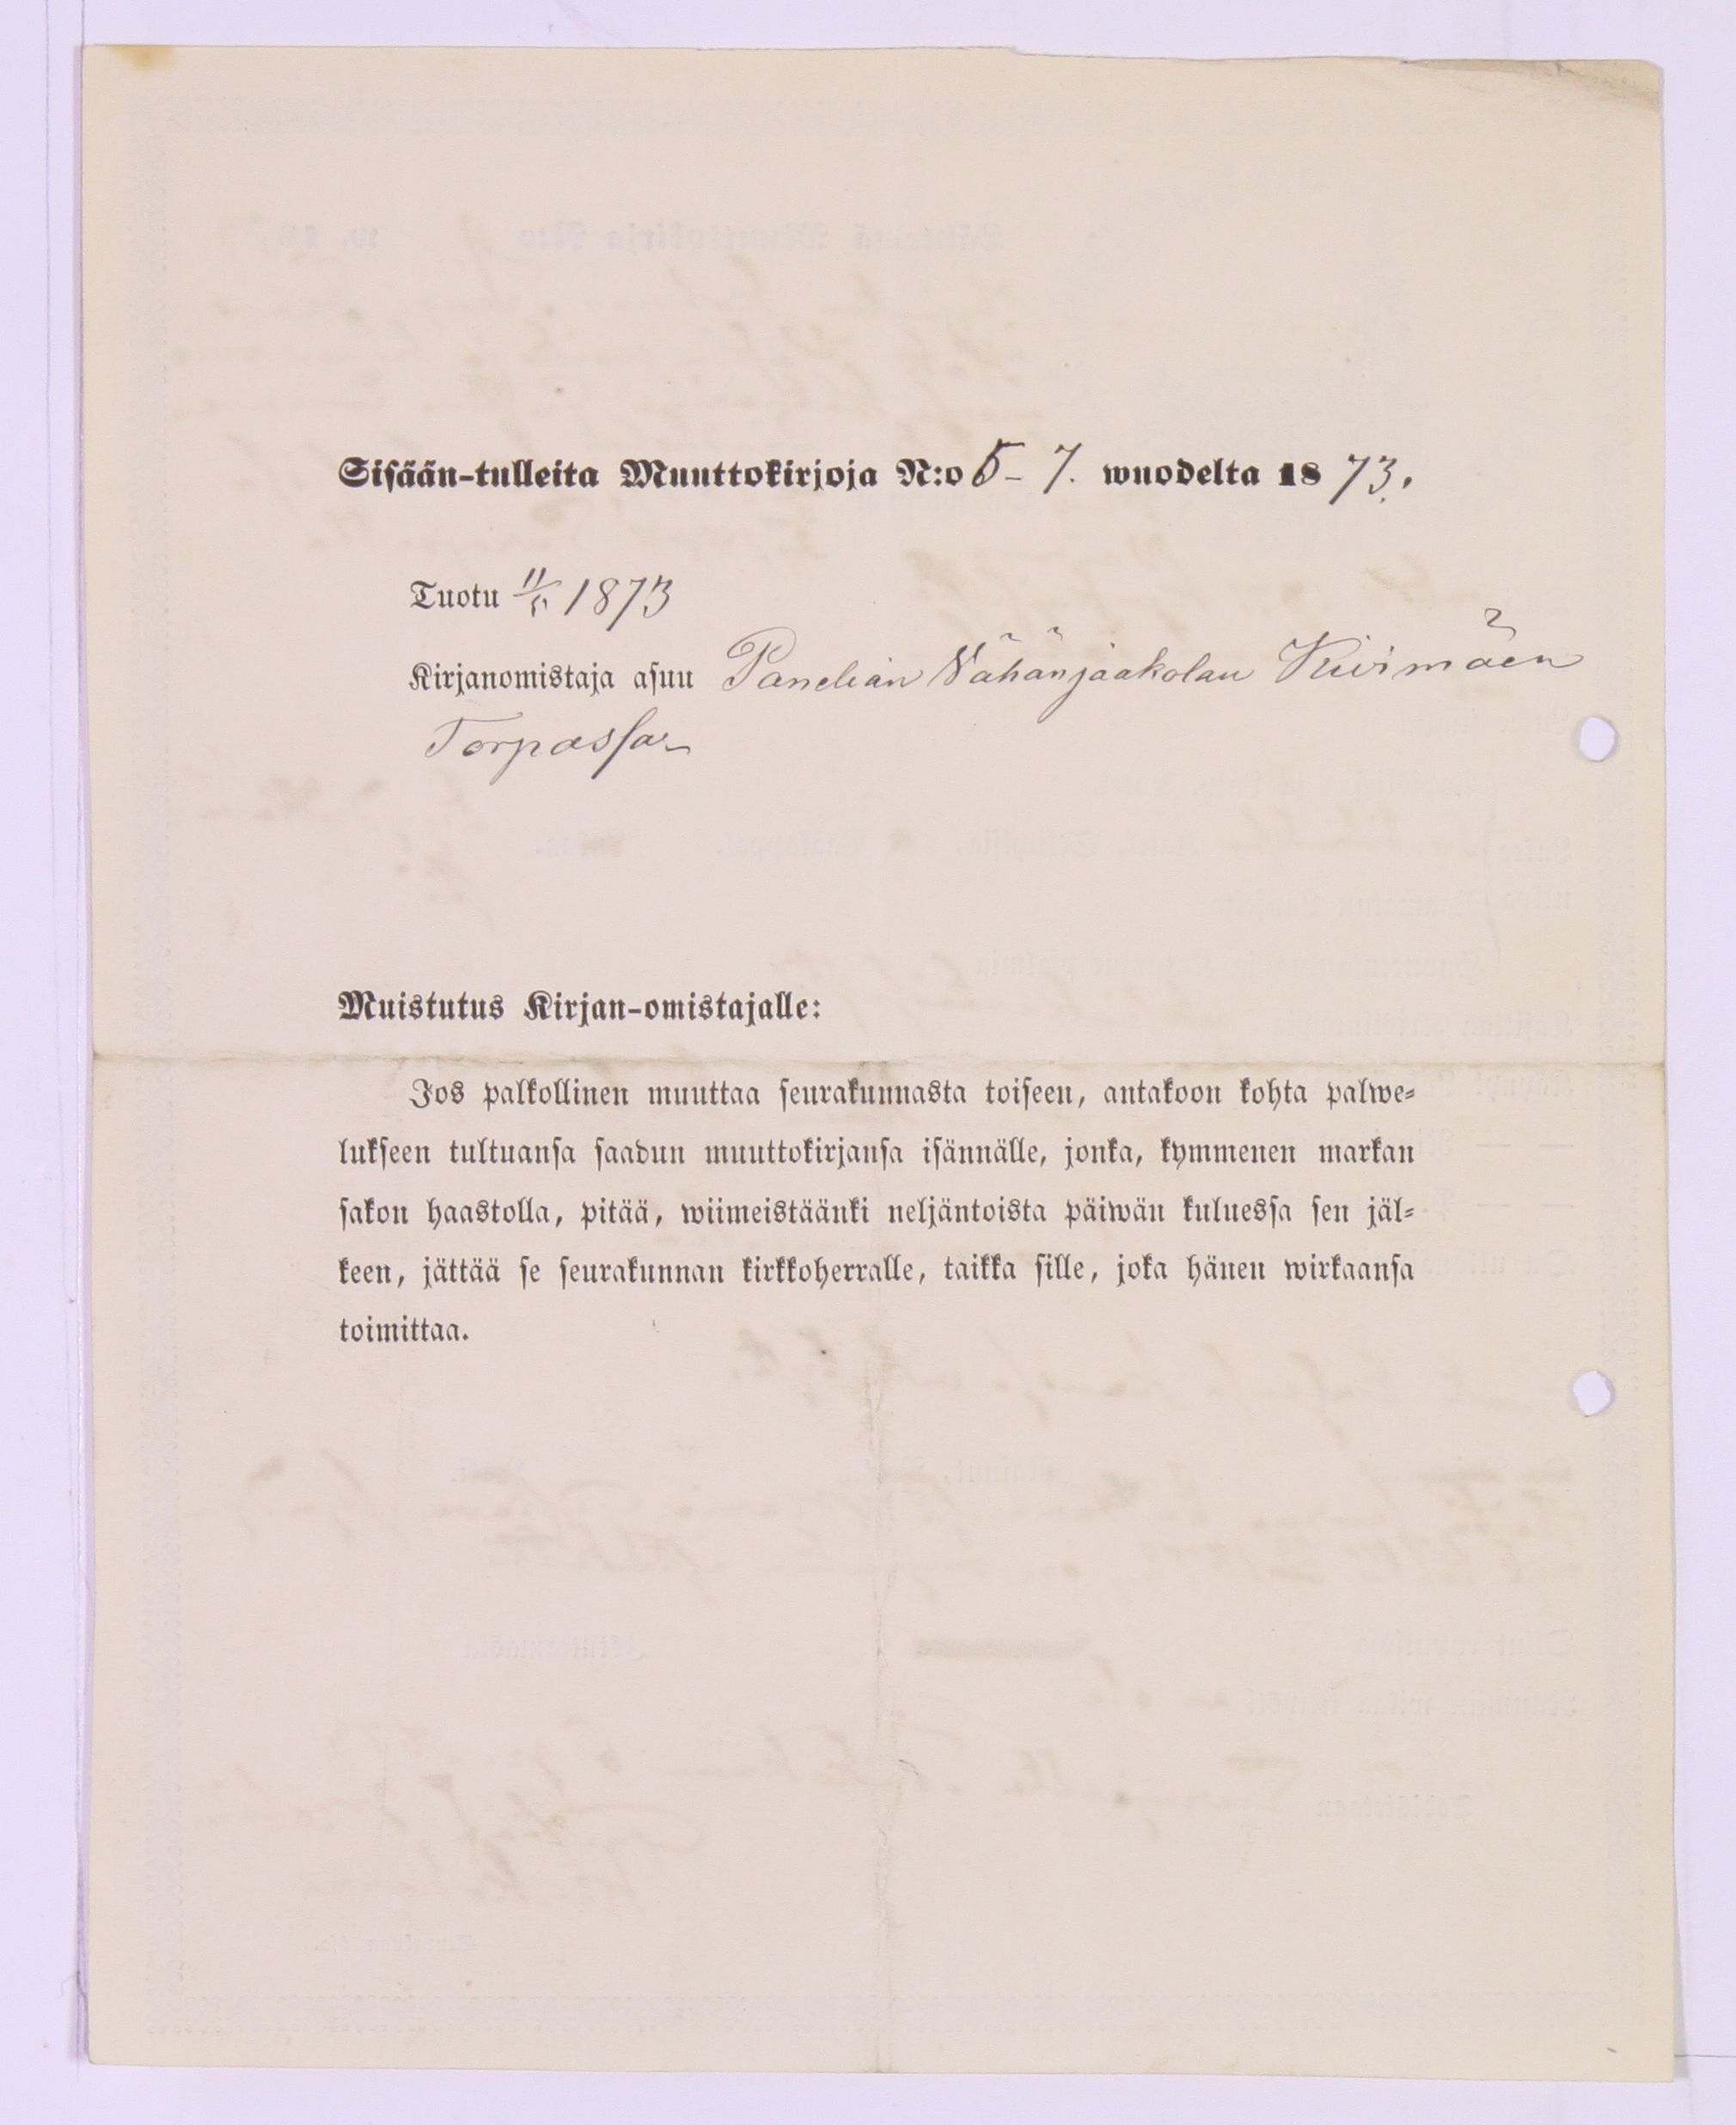 Sisään-tulleita Muuttokirjoja N:o 5-7. wuodelta 1873.
Tuotu 11/5 1873
Kirjanomistaja asuu Panelian Vähänjaakolan Kivimäen
Torpassa
Muistutus Kirjan-omistajalle:
Jos palkollinen muuttaa seurakunnasta toiseen, antakoon kohta palwe-
lukseen tultuansa saadun muuttokirjansa isännälle, jonka, kymmenen markan
sakon haastolla, pitää, wiimeistäänki neljäntoista päiwän kuluessa sen jäl-
keen, jättää se seurakunnan kirkkoherralle, taikka sille, joka hänen wirkaansa
toimittaa.